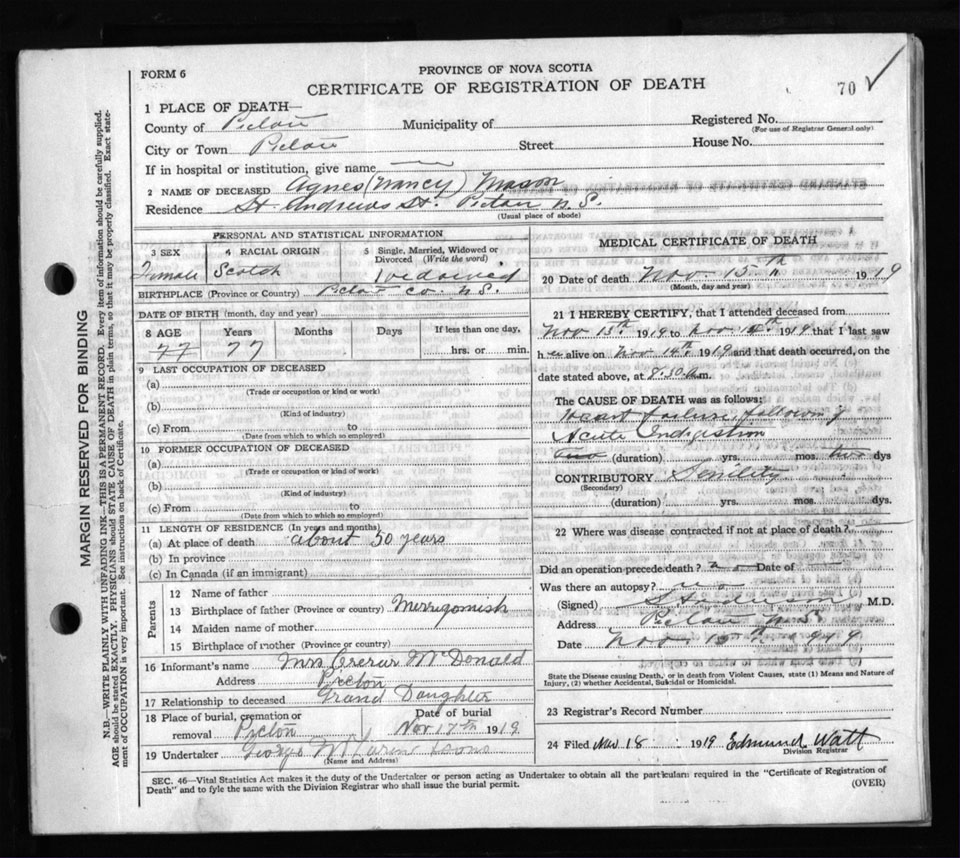 FORM 6
PROVINCE OF NOVA SCOTIA
CERTIFICATE OF REGISTRATION OF DEATH
70 ✓
1 PLACE OF DEATH—
County of Pictou Municipality of Registered No.
(For use of Registrar General only)
City or Town Pictou Street House No.
If in hospital or institution, give name
2 NAME OF DECEASED Agnes (Nancy) Mason
Residence St. Andrews St. Pictou N.S.
(Usual place of abode)
PERSONAL AND STATISTICAL INFORMATION
3 SEX 4 RACIAL ORIGIN 5 Single, Married, Widowed or Divorced (Write the word)
Female Scotch Widowed
BIRTHPLACE (Province or Country) Pictou Co. N.S.
DATE OF BIRTH (month, day and year)
8 AGE Years Months Days If less than one day,
77 77 hrs. or min.
9 LAST OCCUPATION OF DECEASED
(a)
(Trade or occupation or kind or work)
(b)
(Kind of industry)
(c) From to
(Date from which to which so employed)
10 FORMER OCCUPATION OF DECEASED
(a)
(Trade or occupation or kind of work)
(b)
(Kind of industry)
(c) From to
(Date from which to which so employed)
11 LENGTH OF RESIDENCE (In years and months)
(a) At place of death about 50 years
(b) In province
(c) In Canada (if an immigrant)
Parents
12 Name of father
13 Birthplace of father (Province or country) Merrigomish
14 Maiden name of mother
15 Birthplace of mother (Province or country)
16 Informant's name Mrs Crerar McDonald
Address Pictou
17 Relationship to deceased Grand Daughter
18 Place of burial, cremation or removal Pictou Date of burial Nov 17th 1919
19 Undertaker George & Sons
(Name and Address)
MEDICAL CERTIFICATE OF DEATH
20 Date of death Nov. 15th 1919
(Month, day and year)
21 I HEREBY CERTIFY, that I attended deceased from
Nov 13th 1919 to Nov 15th 1919 that I last saw
her alive on Nov 14th 1919 and that death occurred, on the
date stated above, at 8.30 a.m.
The CAUSE OF DEATH was as follows:
Heart failure, following
Acute Indigestion
(duration) yrs. mos. two dys
CONTRIBUTORY Senility
(Secondary)
(duration) yrs. mos. dys.
22 Where was disease contracted if not at place of death?
Did an operation precede death? no Date of
Was there an autopsy? no
(Signed) M.D.
Address Pictou N.S.
Date Nov. 15th 1919
State the Disease causing Death, or in death from Violent Causes, state (1) Means and Nature of
Injury, (2) whether Accidental, Suicidal or Homicidal.
23 Registrar's Record Number
24 Filed Nov 18 1919 Edmund Watt
Division Registrar
SEC. 46—Vital Statistics Act makes it the duty of the Undertaker or person acting as Undertaker to obtain all the particulars required in the "Certificate of Registration of
Death" and to fyle the same with the Division Registrar who shall issue the burial permit.
(OVER)
MARGIN RESERVED FOR BINDING
N.B.—WRITE PLAINLY WITH UNFADING INK—THIS IS A PERMANENT RECORD. Every item of information should be carefully supplied.
AGE should be stated EXACTLY. PHYSICIANS should STATE CAUSE OF DEATH in plain terms, so that it may be properly classified. Exact state-
ment of OCCUPATION is very important. See instructions on back of Certificate.